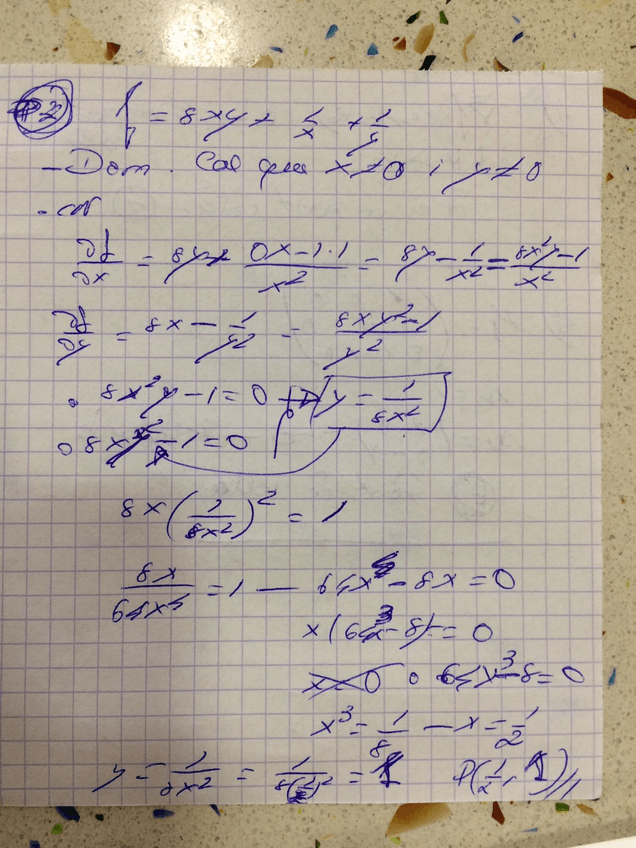 2 f = 8xy + 1/x + 1/y
- Dom. Cal que x≠0 i y≠0
- CN
∂f/∂x = 8y + (0x-1·1)/x² = 8y - 1/x² = (8x²y-1)/x²
∂f/∂y = 8x - 1/y² = (8xy²-1)/y²
• 8x²y-1=0 → y = 1/(8x²)
• 8xy²-1=0
8x(1/(8x²))² = 1
8x/(64x⁴) = 1 — 64x⁴-8x=0
x(64x³-8)=0
x=0 o 64x³-8=0
x³=1/8 — x=1/2
y = 1/(8x²) = 1/(8(1/2)²) = 1 P(1/2, 1)//